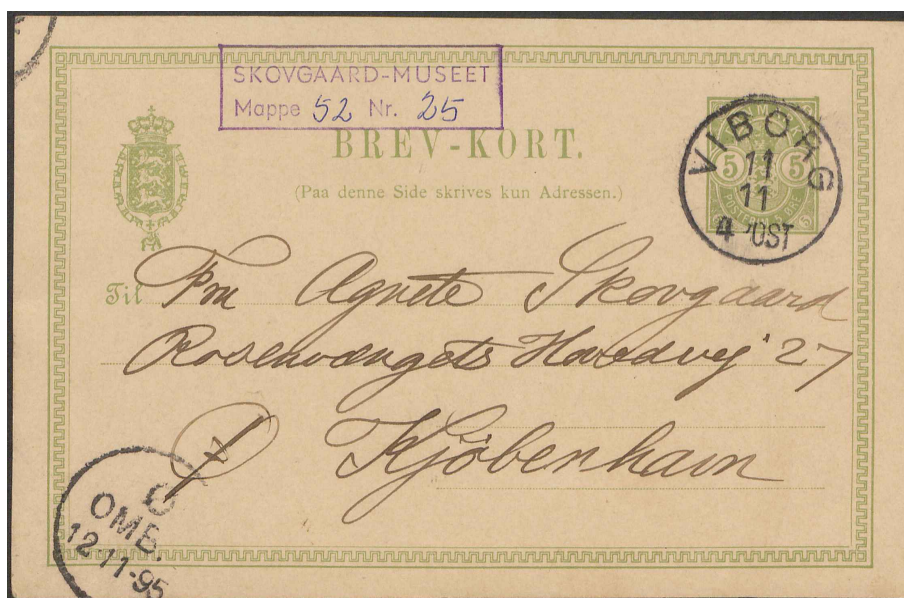 SKOVGAARD-MUSEET
Mappe 52 Nr. 25
BREV-KORT.
(Paa denne Side skrives kun Adressen.)
VIBORG
11
11
4 POST
5 5
Til Fru Agnete Skovgaard
Rosenvængets Hovedvej 27
Ø Kjöbenhavn
OMB.
12-11-95